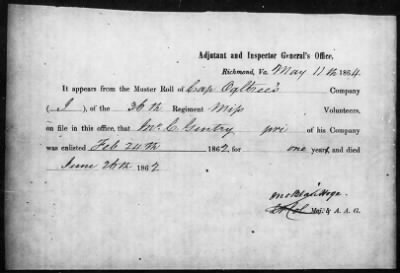 Adjutant and Inspector General's Office,
Richmond, Va. May 11th 1864.
It appears from the Muster Roll of Cap Ogltree's Company
(I), of the 36th Regiment Mip Volunteers,
on file in this office, that Mc. C. Gentry pri of his Company
was enlisted Feb 24th 1862, for one year, and died
June 26th 1862
Maj. & A. A. G.